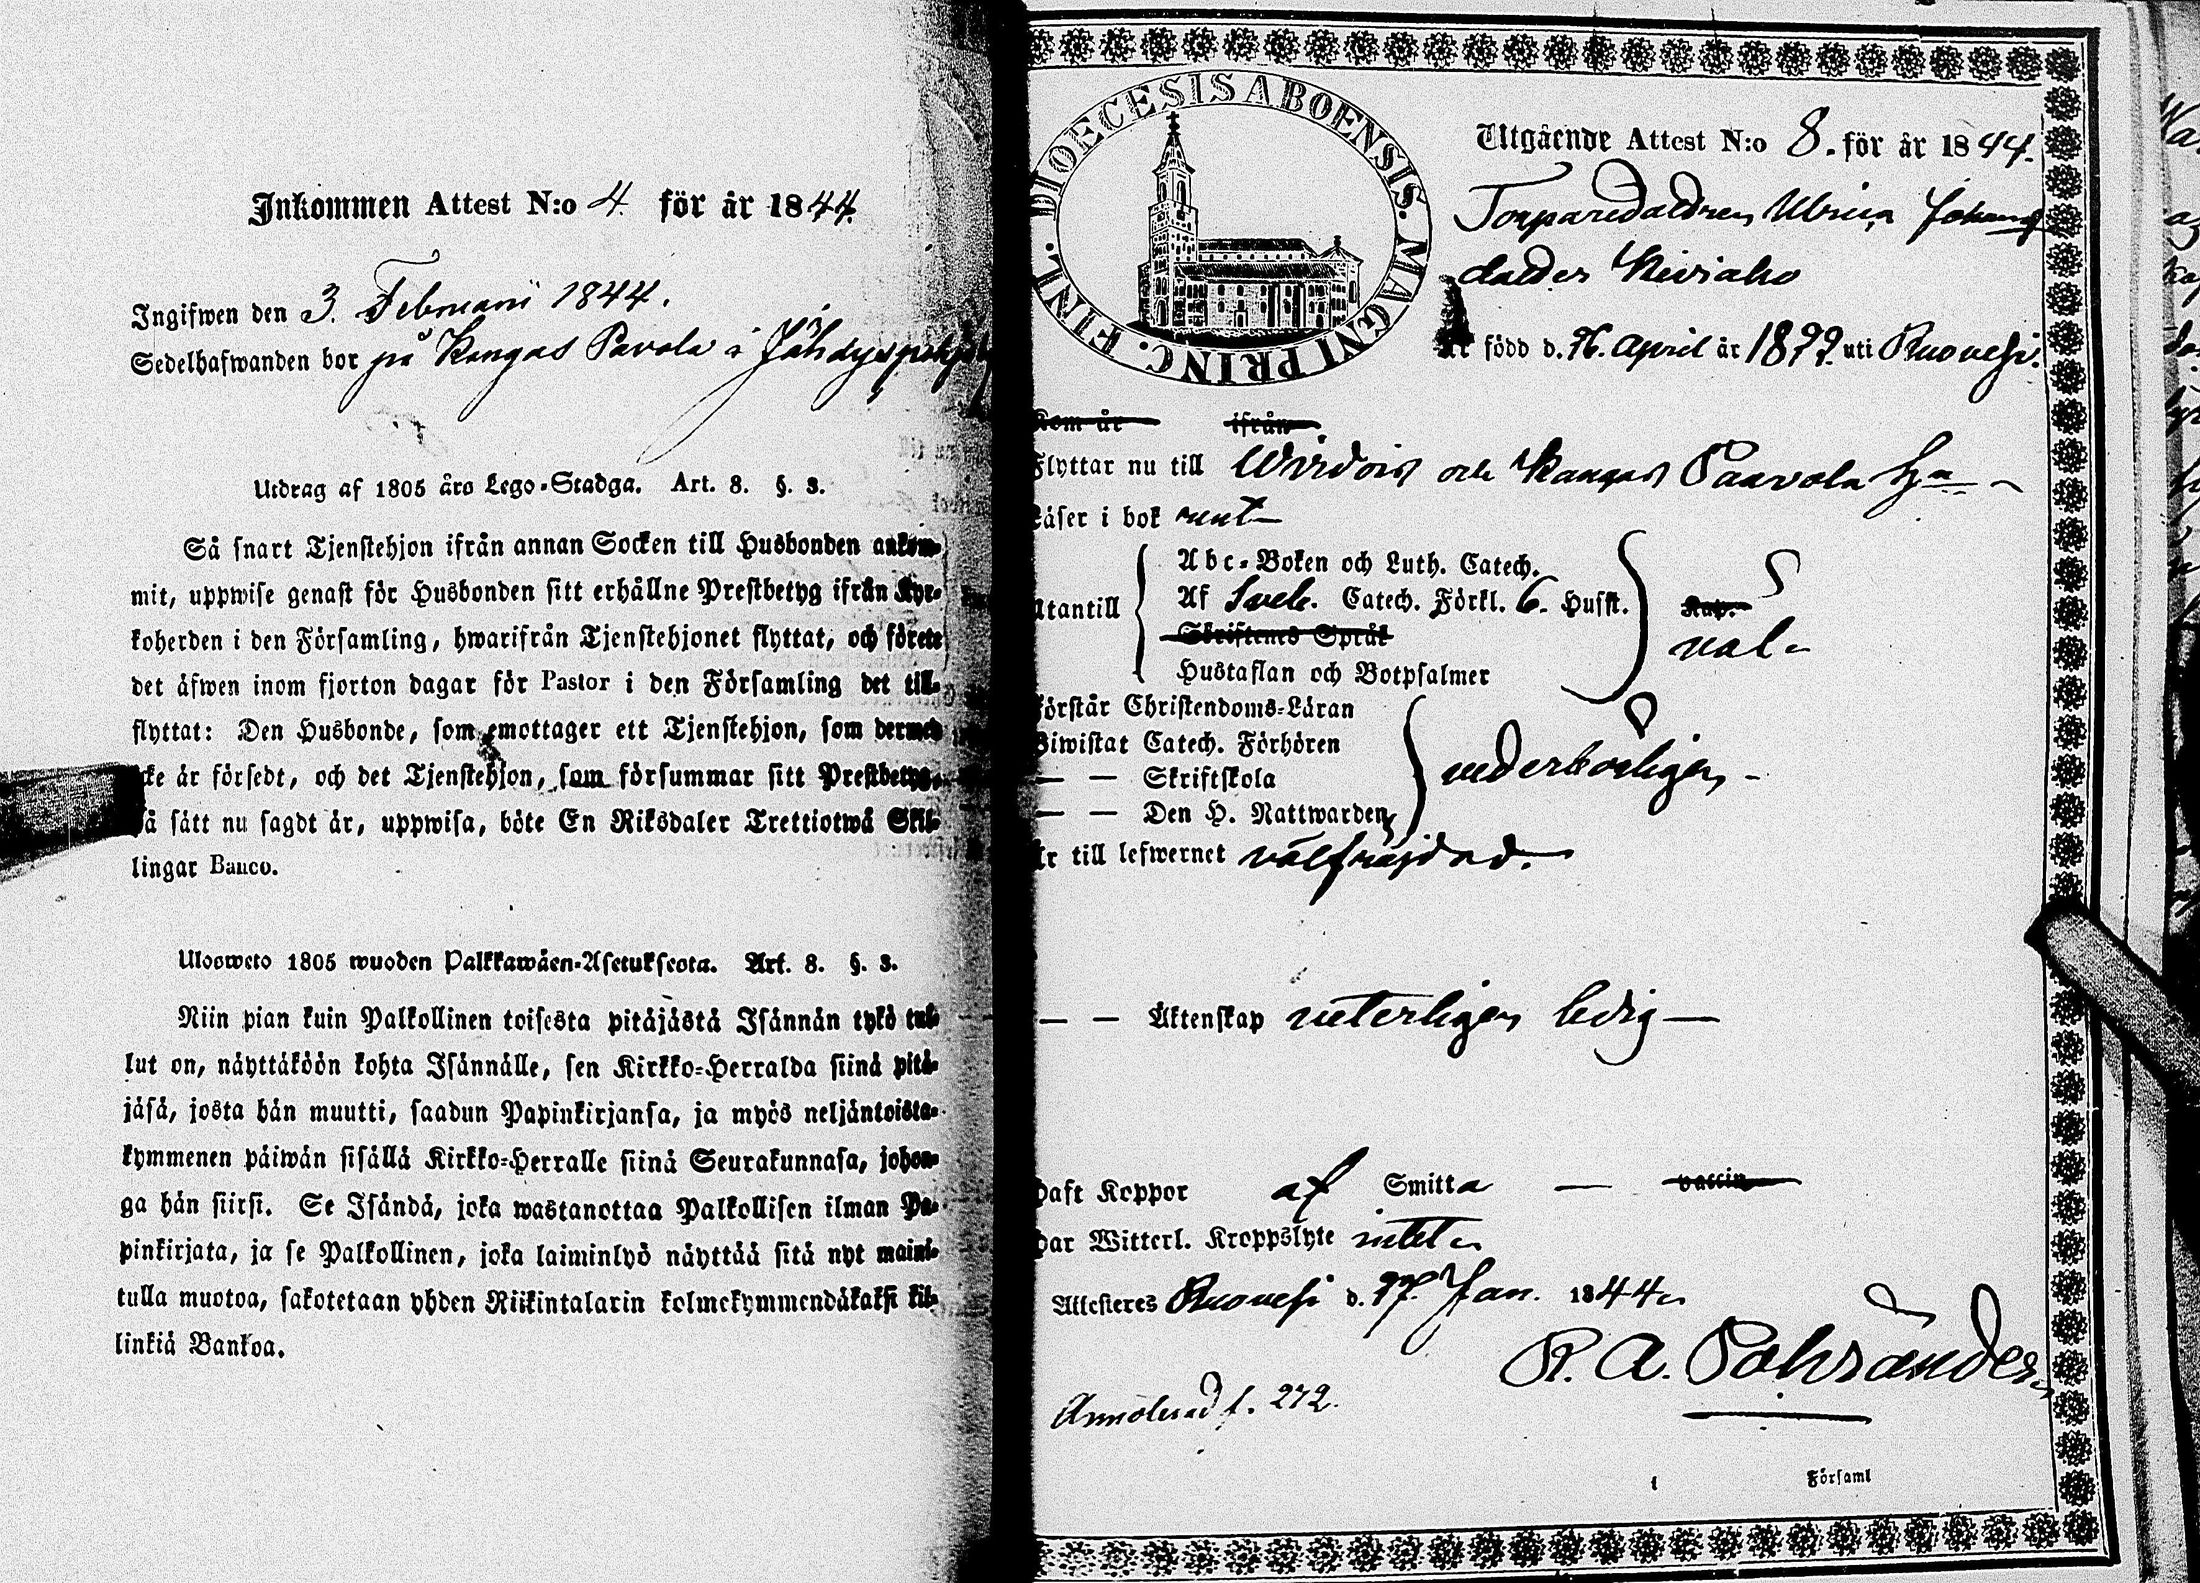 Inkommen Attest N:o 4. för år 1844.
Ingifwen den 3. Februari 1844.
Sedelhafwanden bor på Kangas Pavola i Jähdyspohja
Utdrag af 1805 års Lego-Stadga. Art. 8. §. 3.
Så snart Tjenstehjon ifrån annan Socken till Husbonden ankom-
mit, uppwise genast för Husbonden sitt erhållne Prestbetyg ifrån Kyr-
koherden i den Församling, hwarifrån Tjenstehjonet flyttat, och förete
det äfwen inom fjorton dagar för Pastor i den Församling det till-
flyttat: Den Husbonde, som emottager ett Tjenstehjon, som dermed
icke är försedt, och det Tjenstehjon, som försummar sitt Prestbetyg,
på sätt nu sagdt är, uppwisa, böte En Riksdaler Trettiotwå Skil-
lingar Banco.
Ulosweto 1805 wuoden Palkkawäen-Asetuksesta. Art. 8. §. 3.
Niin pian kuin Palkollinen toisesta pitäjästä Isännän tykö tul-
lut on, näyttäköön kohta Isännälle, sen Kirkko-Herralda siinä pitä-
jäsä, josta hän muutti, saadun Papinkirjansa, ja myös neljäntoista-
kymmenen päiwän sisällä Kirkko-Herralle siinä Seurakunnasa, johon-
ga hän siirsi. Se Isändä, joka wastanottaa Palkollisen ilman Pa-
pinkirjata, ja se Palkollinen, joka laiminlyö näyttää sitä nyt maini-
tulla muotoa, sakotetaan yhden Riikintalarin kolmekymmendäkaksi kil-
linkiä Bankoa.
DIOECESIS ABOENSIS. MAGNI PRINC. FINL.
Utgående Attest N:o 8. för år 1844.
Torparedottren Ulrica Johans
dotter Keiriaho
Är född d. 26. April år 1822. uti Ruovesi.
Kom år ifrån
Flyttar nu till Wirdois och Kangas Paavola
Läser i bok rent
Utantill
Abc-Boken och Luth. Catech.
Af Sveb. Catech. Förkl. 6. Husst.
Skriftenes Språk
Hustaflan och Botpsalmer
Kap.
väl
Förstår Christendoms-Läran
Biwistat Catech. Förhören
— — Skriftskola
— — Den H. Nattwarden
vederbörligen
Är till lefwernet välfräjdad.
— — Äktenskap veterligen ledig
Haft Koppor af Smitta — vaccin
Har Witterl. Kroppslyte intet
Attesteres Ruovesi d. 27. Jan. 1844
R. A. Pohränder
Annoterad f. 272.
Församl